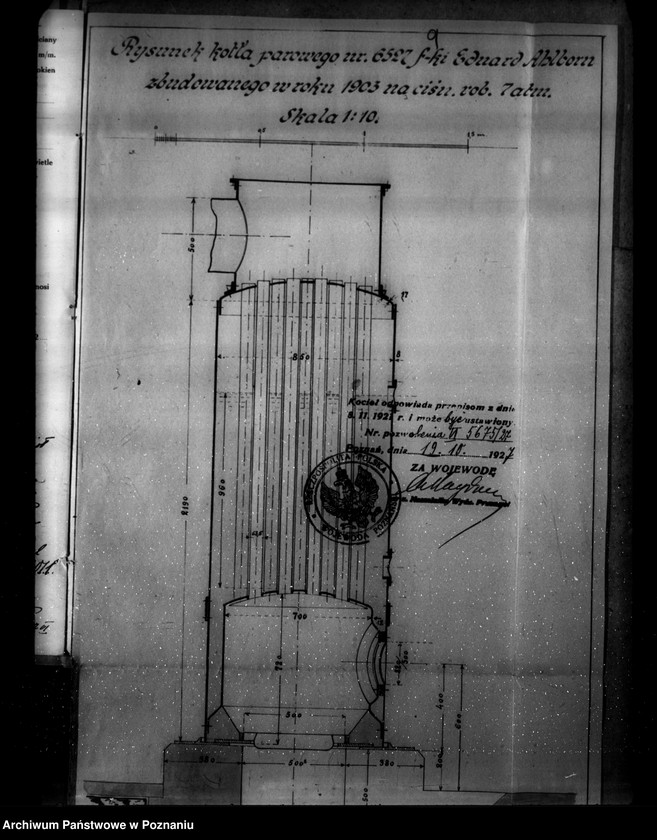 9
Rysunek kotła parowego nr. 6527 f-ki Eduard Ahlborn
zbudowanego w roku 1903 na ciśn. rob. 7 atm.
Skala 1:10.
500
17
860
8
Kocioł odpowiada przepisom z dnia
8. II. 1921 r. i może być ustawiony.
Nr. pozwolenia VI 5675/27
Poznań, dnia 19. 10. 1927
ZA WOJEWODĘ
RZECZPOSPOLITA POLSKA
WOJEWODA POZNAŃSKI
960
2190
700
720
500
400
600
200
380
500
380
500
Archiwum Państwowe w Poznaniu